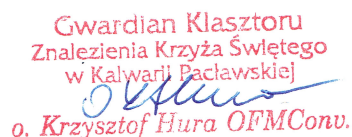 Gwardian Klasztoru
Znalezienia Krzyża Świętego
w Kalwarii Pacławskiej
o. Krzysztof Hura OFMConv.